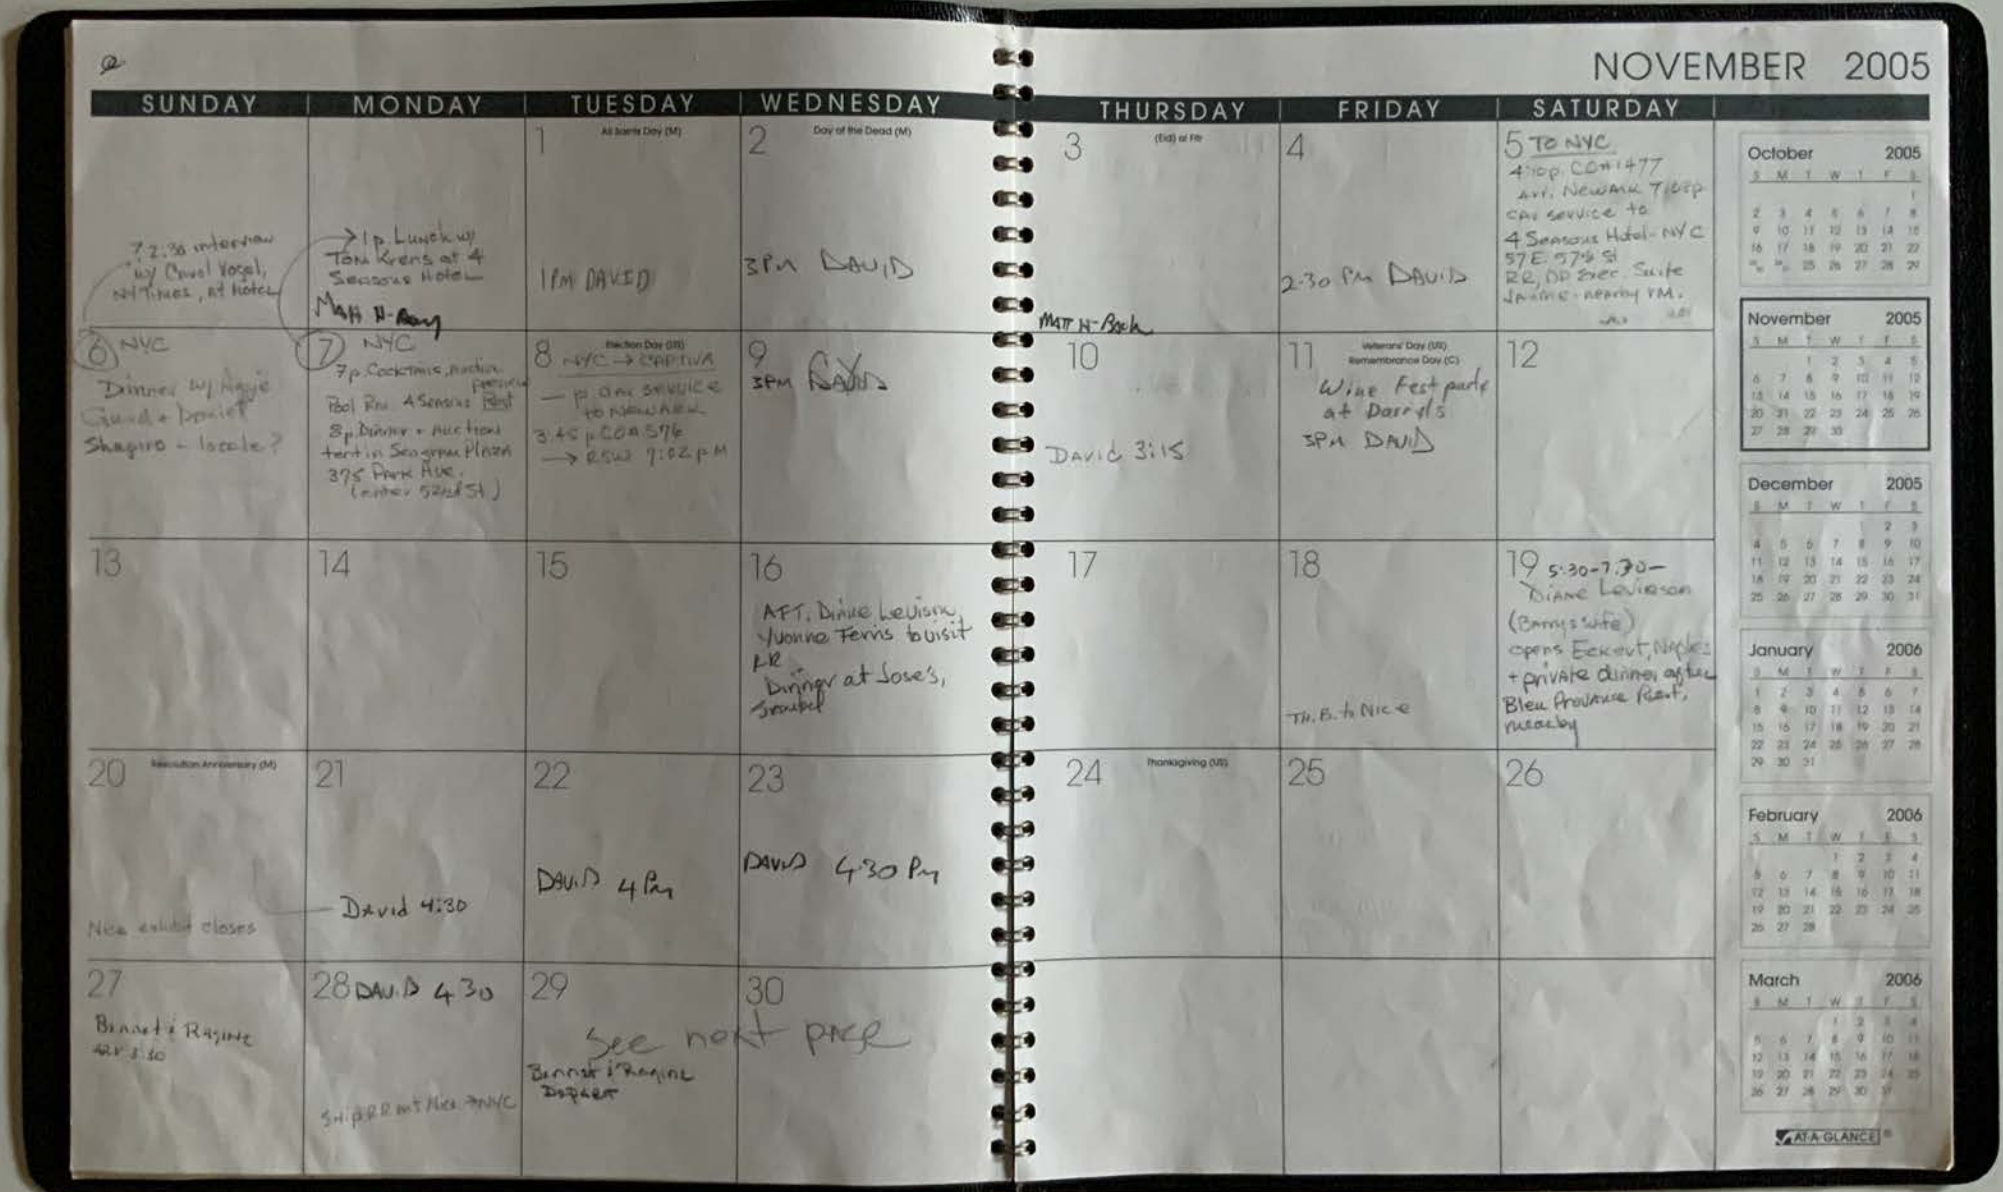 NOVEMBER 2005
SUNDAY MONDAY TUESDAY WEDNESDAY THURSDAY FRIDAY SATURDAY
? 2:30 interview
w/ Carol Vogel,
NY Times, at hotel
→ 1p. Lunch w/
Tom Krens at 4
Seasons Hotel
Matt H-
1 All Saints Day (M)
1PM DAVID
2 Day of the Dead (M)
3PM DAVID
3 (Eid) al Fitr
Matt H-Back
4
2:30 PM DAVID
5 TO NYC
4:10p. CO#1477
Arr. Newark
car service to
4 Seasons Hotel-NYC
57 E. 57th St
RR, DP Exec. Suite
nearby RM.
6 NYC
Dinner w/ Aggie
Gund + Daniel
Shapiro - locale?
7 NYC
7p. Cocktails, auction
preview
Pool Rm. 4 Seasons Rest
8p. Dinner + Auction
tent in Seagram Plaza
375 Park Ave.
(enter 52nd St.)
8 Election Day (US)
NYC → CAPTIVA
— p. car service
to NEWARK
3:45p CO# 576
→ RSW 7:02 pM
9
3PM DAVID
10
David 3:15
11 Veterans' Day (US)
Remembrance Day (C)
Wine Fest party
at Darryl's
3PM DAVID
12
13
14
15
16
AFT. Diane Levison,
Yvonne Ferris to visit
RR
Dinner at Jose's,
17
18
TH. B. to Nice
19 5:30-7:30-
Diane Levinson
(Barry's wife)
opens Eckert, Naples
+ private dinner after
Bleu Provence Rest.
nearby
20 Revolution Anniversary (M)
Nice exhibit closes
21
— David 4:30
22
DAVID 4 PM
23
DAVID 4:30 PM
24 Thanksgiving (US)
25
26
27
Bennet & Ragine
arr 3:30
28 DAVID 4 30
Ship RR Nice → NYC
29
See next page
Bennet & Ragine
Depart
30
October 2005
S M T W T F S
1
2 3 4 5 6 7 8
9 10 11 12 13 14 15
16 17 18 19 20 21 22
25 26 27 28 29
November 2005
S M T W T F S
1 2 3 4 5
6 7 8 9 10 11 12
13 14 15 16 17 18 19
20 21 22 23 24 25 26
27 28 29 30
December 2005
S M T W T F S
1 2 3
4 5 6 7 8 9 10
11 12 13 14 15 16 17
18 19 20 21 22 23 24
25 26 27 28 29 30 31
January 2006
S M T W T F S
1 2 3 4 5 6 7
8 9 10 11 12 13 14
15 16 17 18 19 20 21
22 23 24 25 26 27 28
29 30 31
February 2006
S M T W T F S
1 2 3 4
5 6 7 8 9 10 11
12 13 14 15 16 17 18
19 20 21 22 23 24 25
26 27 28
March 2006
S M T W T F S
1 2 3 4
5 6 7 8 9 10 11
12 13 14 15 16 17 18
19 20 21 22 23 24 25
26 27 28 29 30 31
AT-A-GLANCE ®